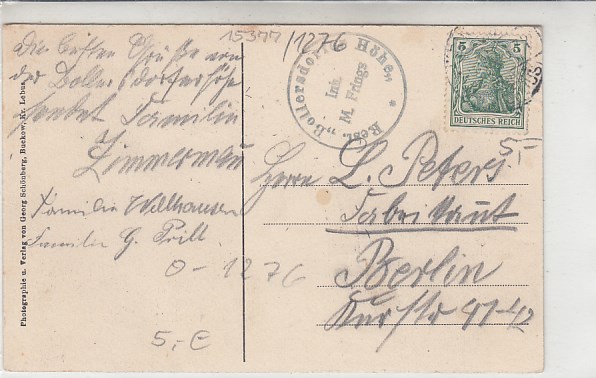 15377
/1276
Die besten Grüße von
der Bollersdorferhöhe
sendet Familie
Zimmermann
Familie Wellhausen
Familie G. Prill
0-1276
5,-€
Photographie u. Verlag von Georg Schönberg, Buckow, Kr. Lebus.
Rest. „Bollersdorfer Höhe„
Inh.
M. Frings
5 5
DEUTSCHES REICH
5,-
Herrn L. Peters
Fabrikant
Berlin
Kurstr 41-42